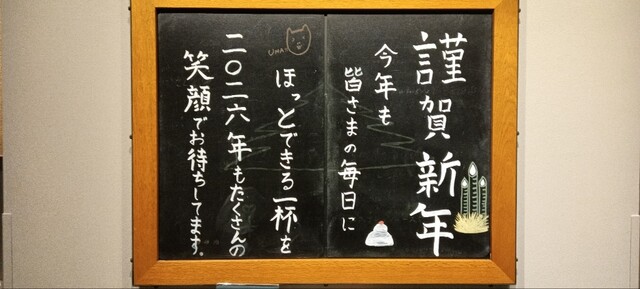 謹賀新年
今年も
皆さまの毎日に
ほっとできる一杯を
二〇二六年もたくさんの
笑顔でお待ちしてます。
UMA